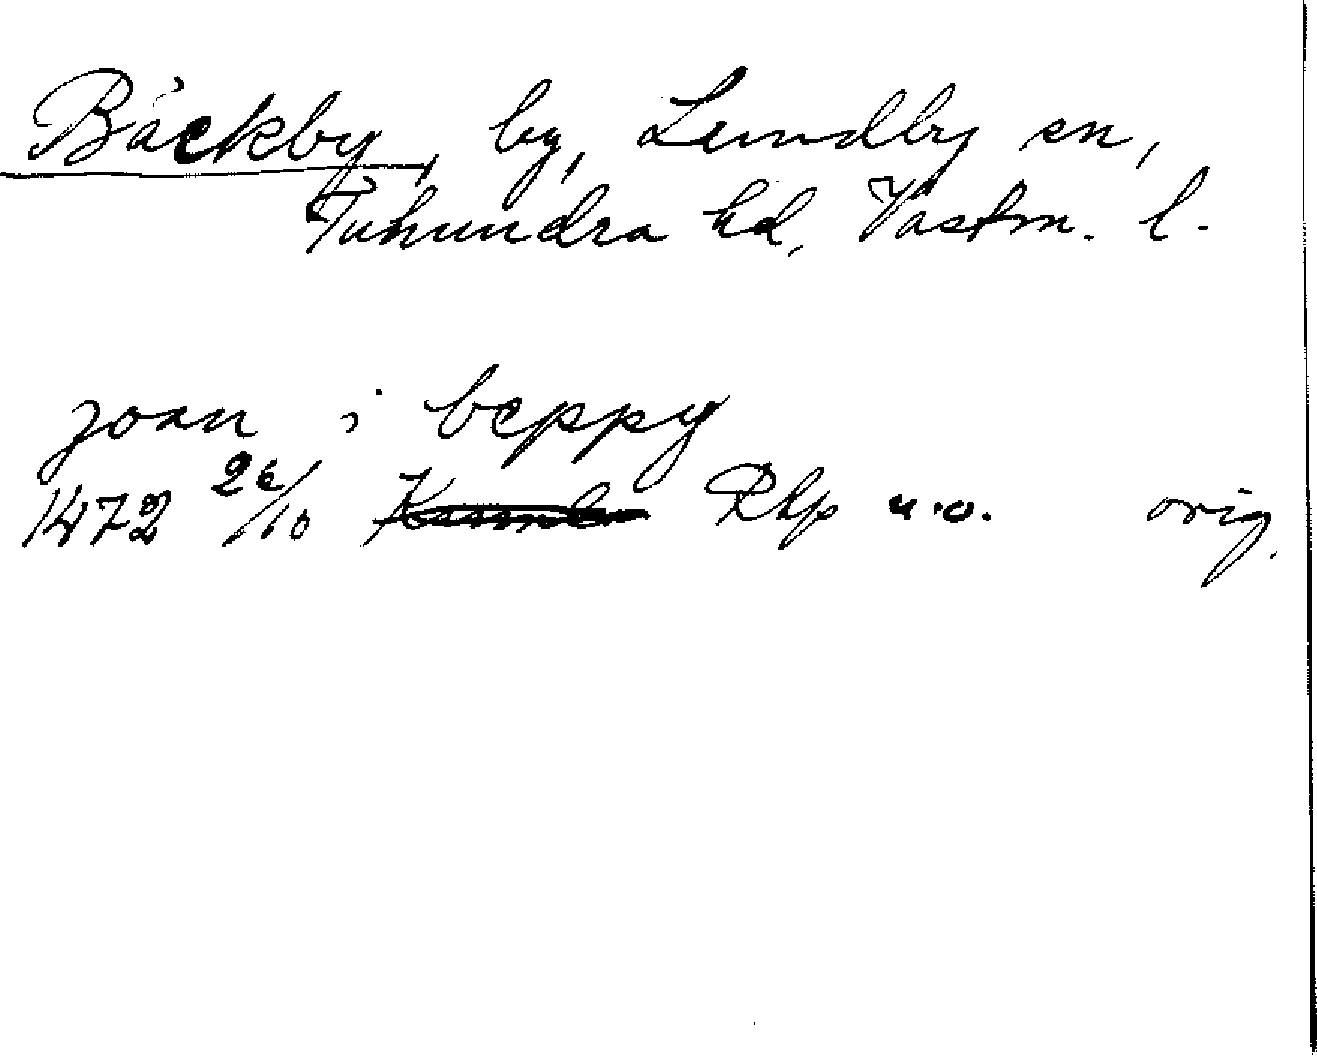 Bäckby, by, Lundby sn,
Tuhundra hd, Västm. l.
joan i beppy
1472 26/10 Rhp u.o. orig.